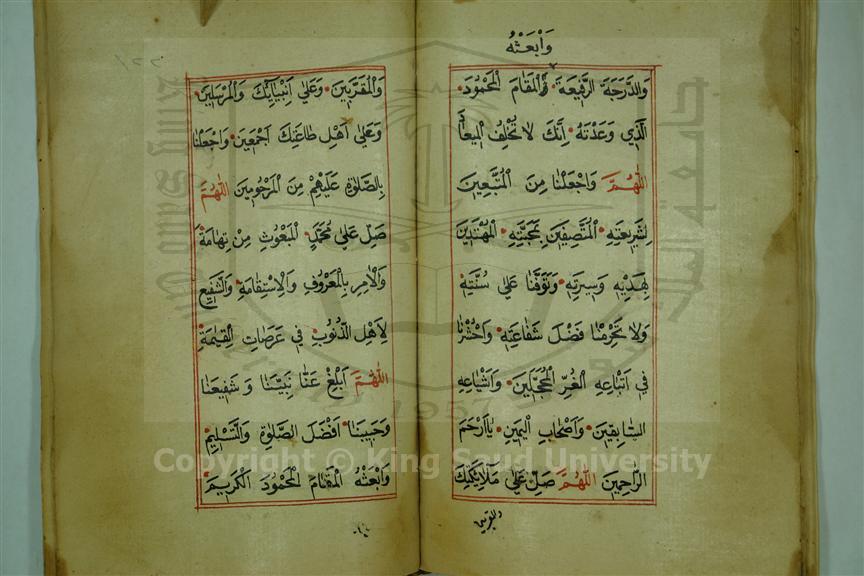 وَابْعَثْهُ
وَالدَّرَجَةَ الرَّفِيعَةَ وَالْمَقَامَ الْمَحْمُودَ
الَّذِي وَعَدْتَهُ اِنَّكَ لَا تُخْلِفُ الْمِيعَادَ
اَللّٰهُمَّ وَاجْعَلْنَا مِنَ الْمُتَّبِعِينَ
لِشَرِيعَتِهِ الْمُتَّصِفِينَ بِمَحَبَّتِهِ الْمُهْتَدِينَ
بِهَدْيِهِ وَسِيرَتِهِ وَتَوَفَّنَا عَلٰى سُنَّتِهِ
وَلَا تَحْرِمْنَا فَضْلَ شَفَاعَتِهِ وَاحْشُرْنَا
فِي اَتْبَاعِهِ الْغُرِّ الْمُحَجَّلِينَ وَاَشْيَاعِهِ
السَّابِقِينَ وَاَصْحَابِ الْيَمِينِ يَا اَرْحَمَ
الرَّاحِمِينَ اَللّٰهُمَّ صَلِّ عَلٰى مَلَائِكَتِكَ
وَالْمُقَرَّبِينَ
وَالْمُقَرَّبِينَ وَعَلٰى اَنْبِيَائِكَ وَالْمُرْسَلِينَ
وَعَلٰى اَهْلِ طَاعَتِكَ اَجْمَعِينَ وَاجْعَلْنَا
بِالصَّلٰوةِ عَلَيْهِمْ مِنَ الْمَرْحُومِينَ اَللّٰهُمَّ
صَلِّ عَلٰى مُحَمَّدٍ الْمَبْعُوثِ مِنْ تِهَامَةَ
وَالْاٰمِرِ بِالْمَعْرُوفِ وَالْاِسْتِقَامَةِ وَالشَّفِيعِ
لِاَهْلِ الذُّنُوبِ فِي عَرَصَاتِ الْقِيٰمَةِ
اَللّٰهُمَّ اَبْلِغْ عَنَّا نَبِيَّنَا وَشَفِيعَنَا
وَحَبِيبَنَا اَفْضَلَ الصَّلٰوةِ وَالتَّسْلِيمِ
وَابْعَثْهُ الْمَقَامَ الْمَحْمُودَ الْكَرِيمَ
Copyright © King Saud University